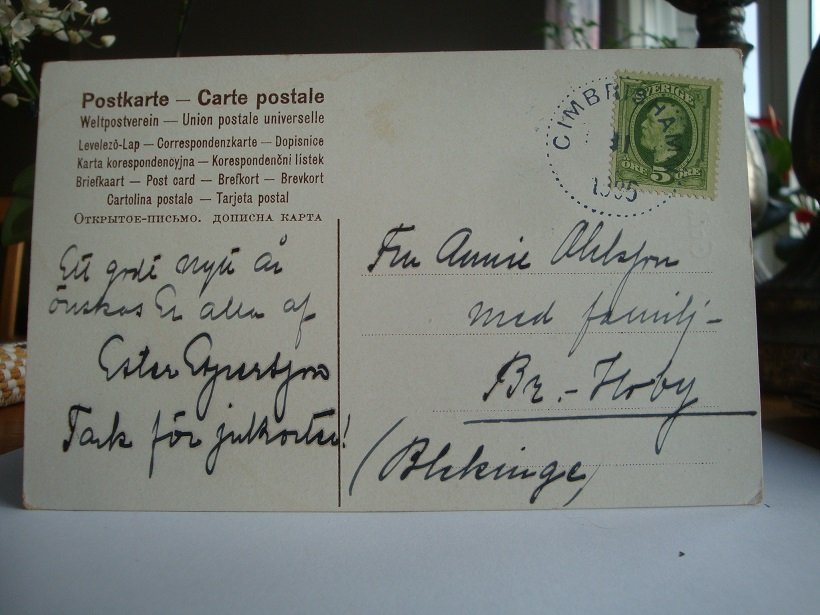 Postkarte — Carte postale
Weltpostverein — Union postale universelle
Levelező-Lap — Correspondenzkarte — Dopisnice
Karta korespondencyjna — Korespondenční lístek
Briefkaart — Post card — Brefkort — Brevkort
Cartolina postale — Tarjeta postal
Открытое-письмо. дописна карта
Ett godt nytt år
önskas Er alla af
Ester
Tack för julkortet!
CIMBRISHAMN
1905
SVERIGE
ÖRE 5 ÖRE
Fru Annie Ohlsson
med familj-
Br.-Hoby
(Blekinge)